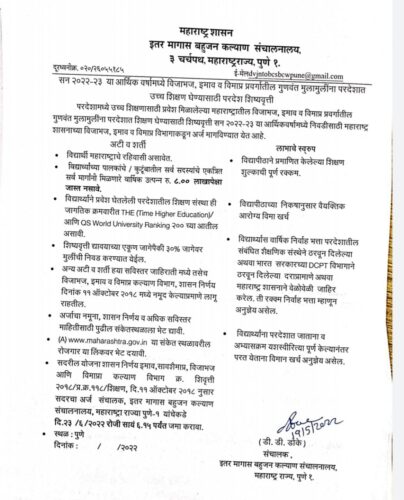 महाराष्ट्र शासन
इतर मागास बहुजन कल्याण संचालनालय,
३ चर्चपथ, महाराष्ट्रराज्य, पुणे १.
दूरध्वनीक्र. ०२०/२६०५५१८५
ई-मेलdvjntobcsbcwpune@gmail.com
सन २०२२-२३ या आर्थिक वर्षामध्ये विजाभज, इमाव व विमाप्र प्रवर्गातील गुणवंत मुलामुलींना परदेशात
उच्च शिक्षण घेण्यासाठी परदेश शिष्यवृत्ती
परदेशामध्ये उच्च शिक्षणासाठी प्रवेश मिळालेल्या महाराष्ट्रातील विजाभज, इमाव व विमाप्र प्रवर्गातील
गुणवंत मुलामुलींना परदेशात शिक्षण घेण्यासाठी शिष्यवृत्ती सन २०२२-२३ या आर्थिकवर्षामध्ये निवडीसाठी महाराष्ट्र
शासनाच्या विजाभज, इमाव व विमाप्र विभागाकडून अर्ज मागविण्यात येत आहे.
अटी व शर्ती
विद्यार्थी महाराष्ट्राचे रहिवासी असावेत.
विद्यार्थ्याच्या पालकांचे / कुटूंबातील सर्व सदस्यांचे एकत्रित
सर्व मार्गांनी मिळणारे वार्षिक उत्पन्न रु. ८.०० लाखापेक्षा
जास्त नसावे.
विद्यार्थ्याने प्रवेश घेतलेली परदेशातील शिक्षण संस्था ही
जागतिक क्रमवारीत THE (Time Higher Education)/
आणि QS World University Ranking २०० च्या आतील
असावी.
शिष्यवृत्ती द्यावयाच्या एकूण जागेपैकी ३०% जागेवर
मुलींची निवड करण्यात येईल.
अन्य अटी व शर्ती हया सविस्तर जाहिराती मध्ये तसेच
विजाभज, इमाव व विमाप्र कल्याण विभाग, शासन निर्णय
दिनांक ११ ऑक्टोबर २०१८ मध्ये नमूद केल्याप्रमाणे लागू
राहतील.
अर्जाचा नमूना, शासन निर्णय व अधिक सविस्तर
माहितीसाठी पुढील संकेतस्थळाला भेट द्यावी.
(A) www.maharashtra.gov.in या संकेत स्थळावरील
रोजगार या लिंकवर भेट दयावी.
सदरील योजना शासन निर्णय इमाव,सावशीमाप्र, विजाभज
आणि विमाप्र कल्याण विभाग क्र. शिवृत्ती
२०१८/प्र.क्र.११८/शिक्षण, दि.११ ऑक्टोबर २०१८ नुसार
सदरचा अर्ज संचालक, इतर मागास बहुजन कल्याण
संचालनालय, महाराष्ट्र राज्य पुणे-१ यांचेकडे
दि.२३ /६/२०२२ रोजी सायं ६.१५ पर्यंत जमा करावा.
स्थळ : पुणे
दिनांक : / /२०२२
लाभाचे स्वरुप
विद्यापीठाने प्रमाणित केलेल्या शिक्षण
शुल्काची पूर्ण रक्कम.
विद्यापीठाच्या निकषानुसार वैयक्तिक
आरोग्य विमा खर्च
विद्यार्थ्यास वार्षिक निर्वाह भत्ता परदेशातील
संबंधित शैक्षणिक संस्थेने ठरवून दिलेल्या
अथवा भारत सरकारच्या DCPT विभागाने
ठरवून दिलेल्या दराप्रमाणे अथवा
महाराष्ट्र शासनाने वेळोवेळी जाहिर
केलेल. ती रक्कम निर्वाह भत्ता म्हणून
अनुज्ञेय असेल.
विद्यार्थ्यांना परदेशात जाताना व
अभ्यासक्रम यशस्वीरित्या पूर्ण केल्यानंतर
परत येताना विमान खर्च अनुज्ञेय असेल.
19/5/2022
(डी. डी. डोके)
संचालक,
इतर मागास बहुजन कल्याण संचालनालय,
महाराष्ट्र राज्य, पुणे